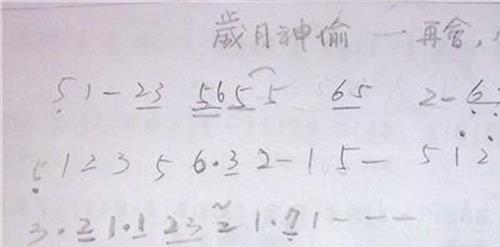 歲月神偷 一 再會，
51-23 5655 65 2-6
51235 6·32-15- 512
3·21·1 232 1·71---